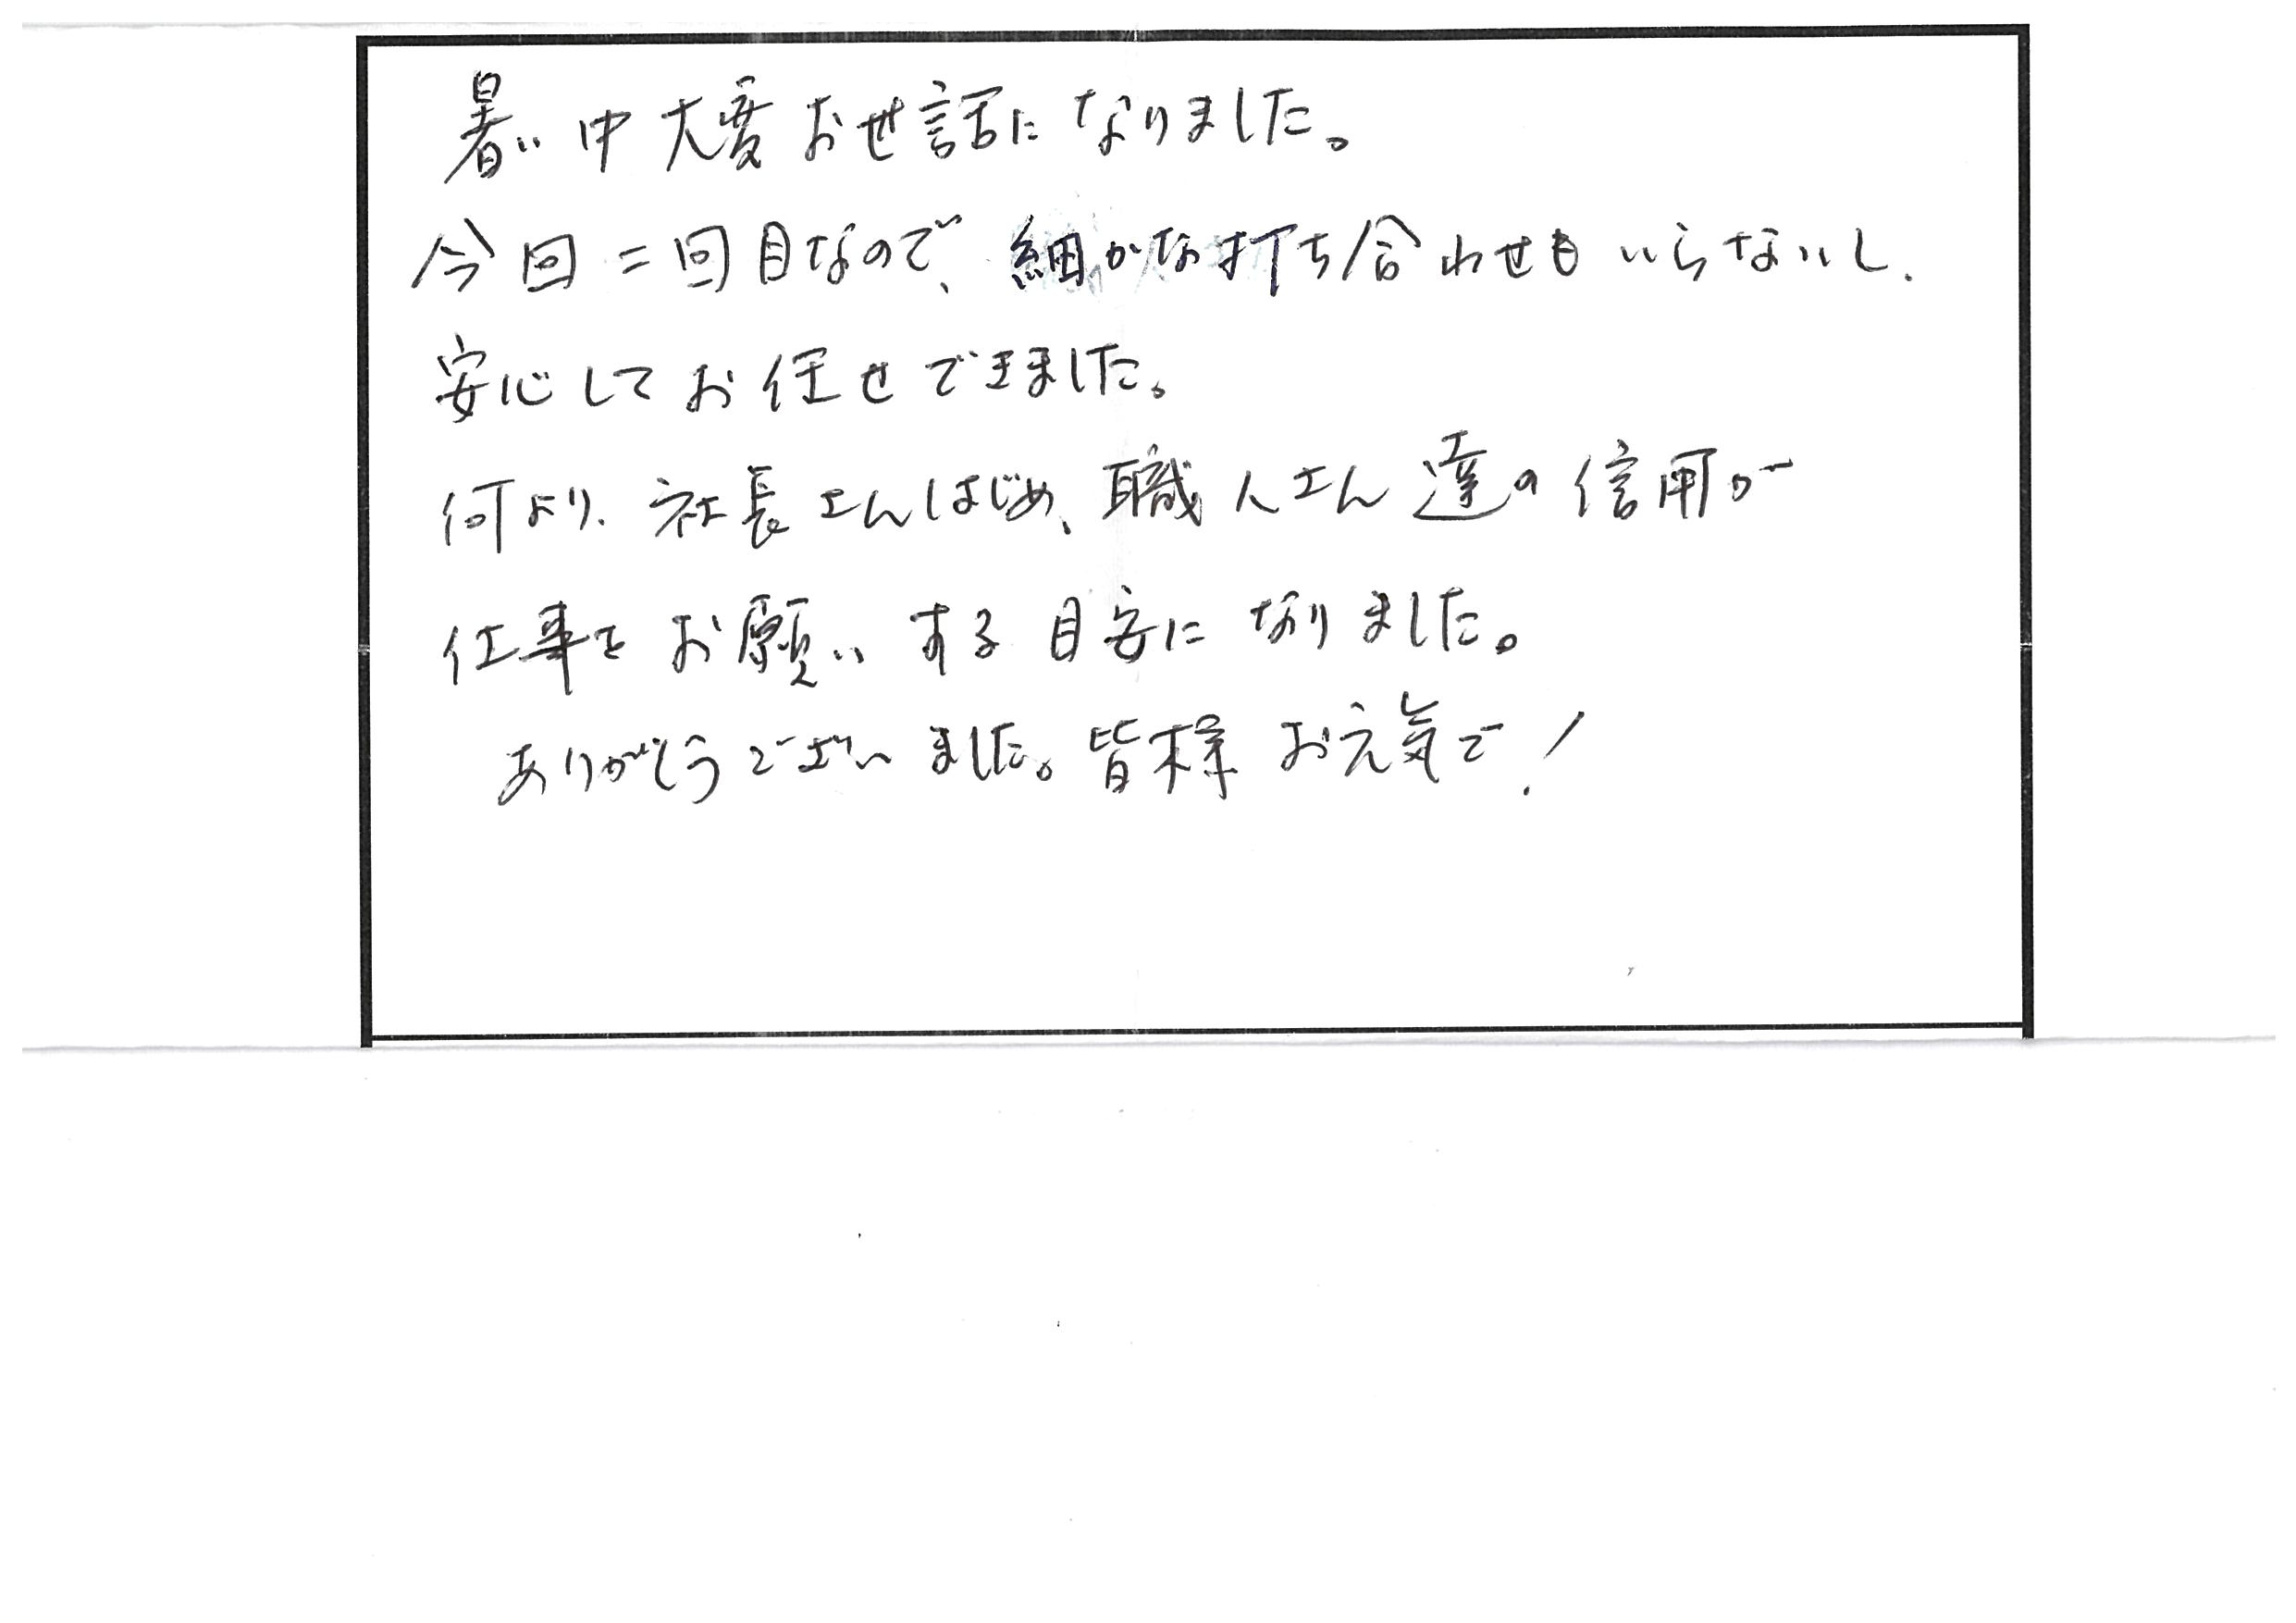 暑い中大変お世話になりました。
今回二回目なので、細かな打ち合わせもいらないし、
安心してお任せできました。
何より、社長さんはじめ、職人さん達の信用が
仕事をお願いする目安になりました。
ありがとうございました。皆様お元気で!